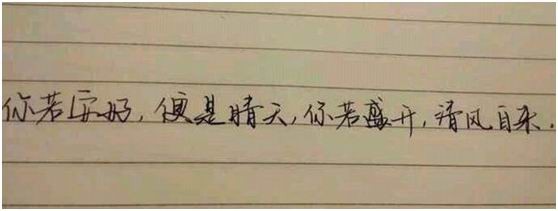 你若安好,便是晴天,你若盛开,清风自来.